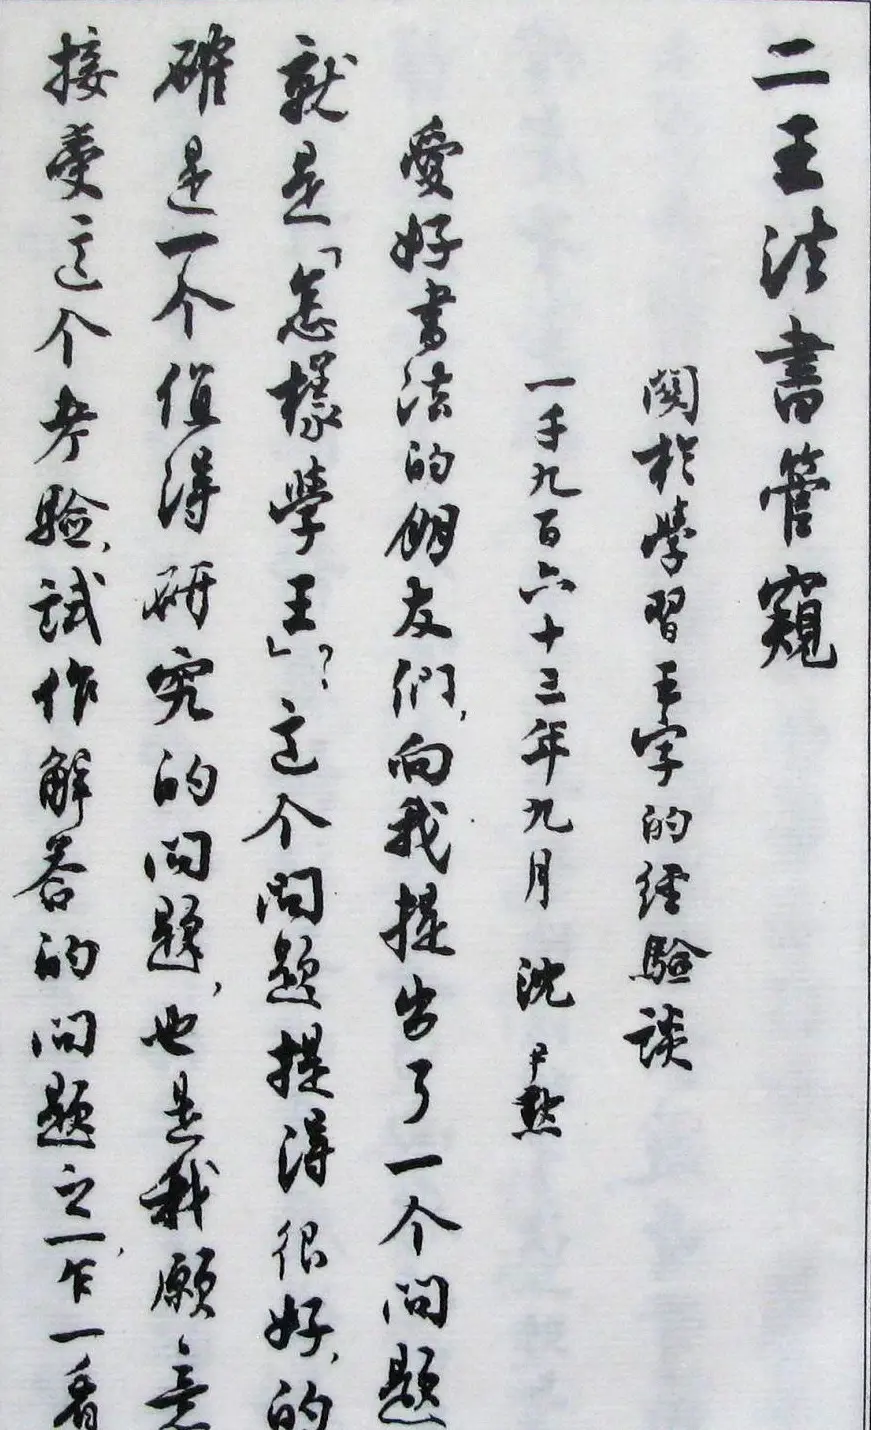 二王法書管窺
關於學習王字的經驗談
一千九百六十三年九月 沈尹默
愛好書法的朋友們,向我提出了一个問題
就是「怎樣學王」?這个問題提得很好,的
確是一个值得研究的問題,也是我願意
接受這个考驗,試作解答的問題之一,乍一看